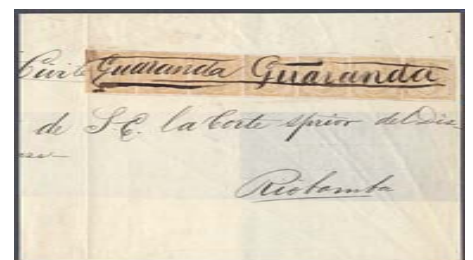 Civil Guaranda Guaranda
de S. E. la Corte Sprior del Dis-
Riobamba